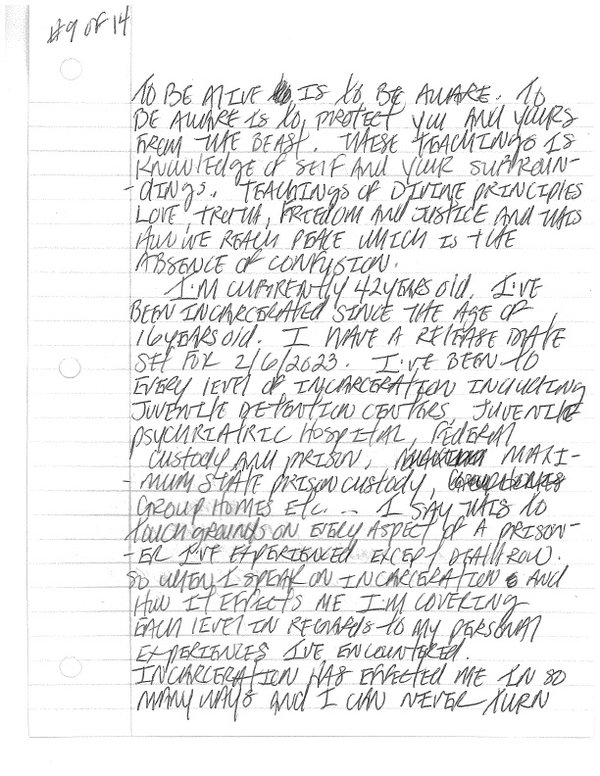 #9 OF 14
TO BE ALIVE IS to BE AWARE. TO
BE AWARE IS to PROTECT YOU AND YOURS
FROM THE BEAST. THESE TEACHINGS IS
KNOWLEDGE OF SELF AND YOUR SURROUN-
-dings. TEACHINGS OF DIVINE PRINCIPLES
LOVE, TRUTH, FREEDOM AND JUSTICE AND THIS
HOW WE REACH PEACE WHICH IS THE
ABSENCE OF CONFUSION.
I'M CURRENTLY 42 YEARS old. I'VE
BEEN INCARCERATED SINCE THE AGE OF
16 YEARS old. I HAVE A RELEASE DATE
SET FOR 2/6/2023. I'VE BEEN to
EVERY level OF INCARCERATION INCLUDING
JUVENILE DETENTION CENTERS, JUVENILE
PSYCHRIATRIC HOSPITAL, FEDERAL
CUSTODY AND PRISON, MAXI-
-MUM STATE PRISON CUSTODY,
GROUP HOMES ETC... I SAY THIS TO
touch grounds ON EVERY ASPECT OF A PRISON-
-ER I'VE EXPERIENCED EXCEPT DEATH ROW.
SO WHEN I SPEAK ON INCARCERATION AND
HOW IT EFFECTS ME I'M COVERING
EACH level IN REGARDS to MY PERSONAL
EXPERIENCES I'VE ENCOUNTERED.
INCARCERATION HAS EFFECTED ME IN SO
MANY WAYS AND I CAN NEVER TURN